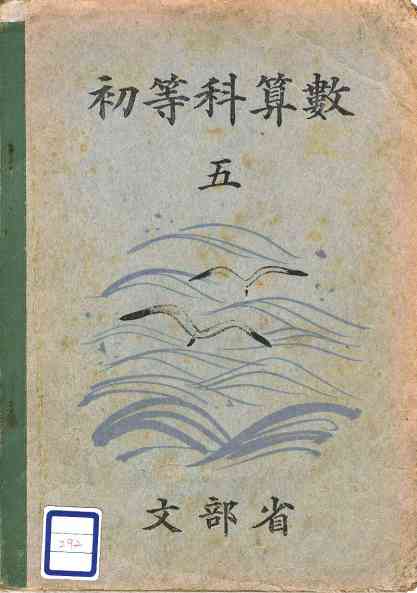 初等科算數
五
文部省
292